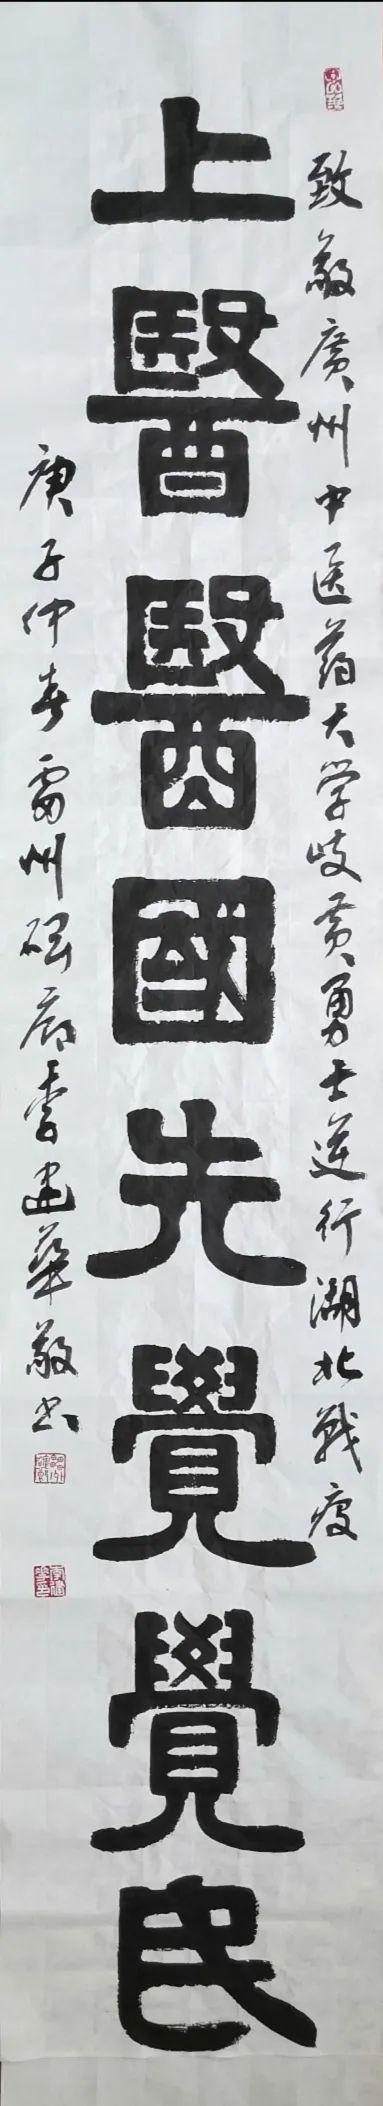 致敬廣州中医药大学岐黄勇士逆行湖北戰疫
上醫醫國先覺覺民
庚子仲春雷州碑廊李建華敬书